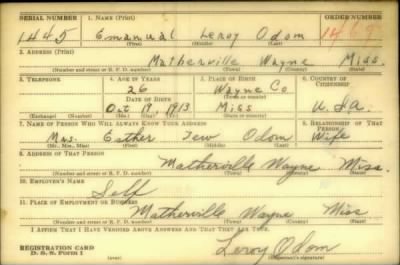 SERIAL NUMBER 1. NAME (Print) ORDER NUMBER
1445 Emanual Leroy Odom
(First) (Middle) (Last)
2. ADDRESS (Print)
Matherville Wayne Miss.
(Number and street or R. F. D. number) (Town) (County) (State)
3. TELEPHONE 4. AGE IN YEARS 5. PLACE OF BIRTH 6. COUNTRY OF CITIZENSHIP
26 Wayne Co
DATE OF BIRTH (Town or county)
Oct 19, 1913 Miss U.S.A.
(Exchange) (Number) (Mo.) (Day) (Yr.) (State or country)
7. NAME OF PERSON WHO WILL ALWAYS KNOW YOUR ADDRESS 8. RELATIONSHIP OF THAT PERSON
Mrs. Esther Tew Odom Wife
(Mr., Mrs., Miss) (First) (Middle) (Last)
9. ADDRESS OF THAT PERSON
Matherville Wayne Miss.
(Number and street or R. F. D. number) (Town) (County) (State)
10. EMPLOYER'S NAME
Self
11. PLACE OF EMPLOYMENT OR BUSINESS
Matherville Wayne Miss
(Number and street or R. F. D. number) (Town) (County) (State)
I AFFIRM THAT I HAVE VERIFIED ABOVE ANSWERS AND THAT THEY ARE TRUE.
REGISTRATION CARD
D. S. S. FORM 1
(over)
Leroy Odom
(Registrant's signature)